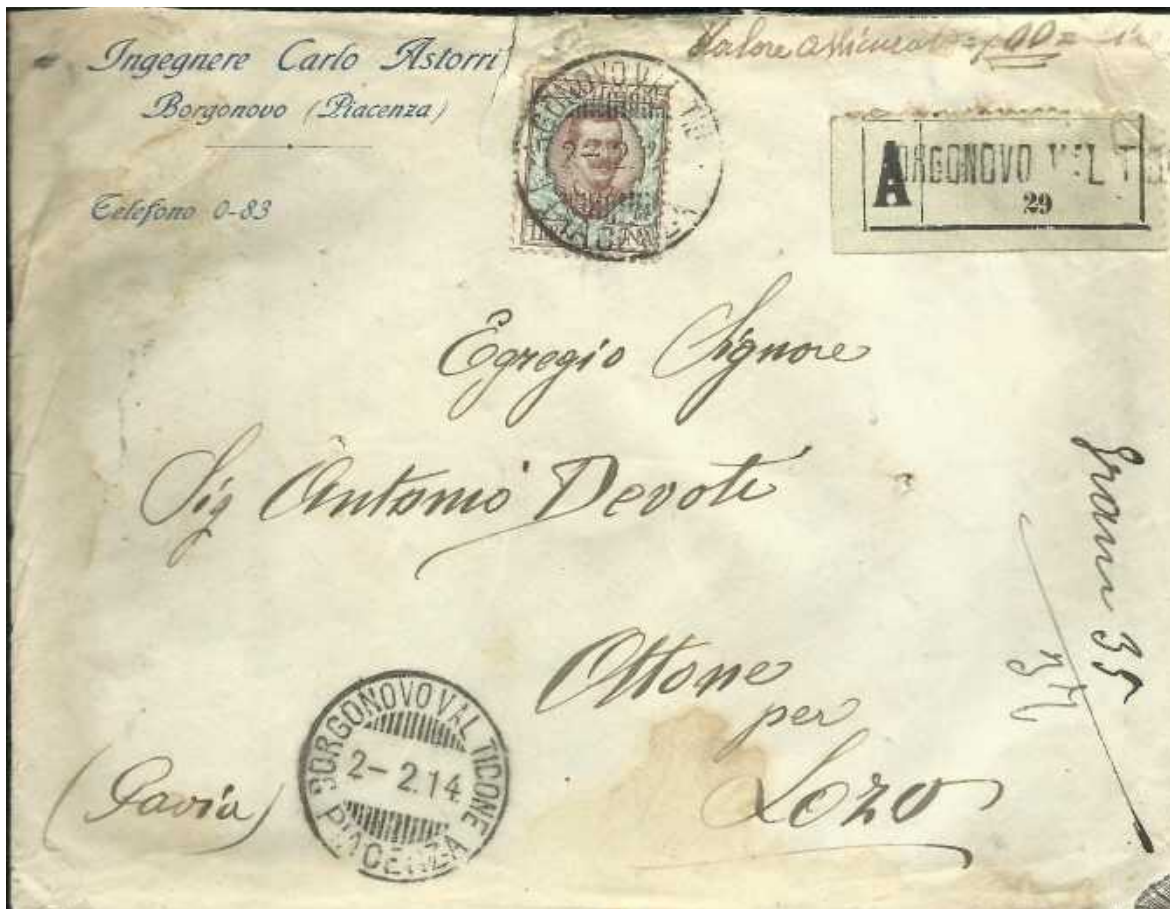 Ingegnere Carlo Astorri
Borgonovo (Piacenza)
Telefono 0-83
Valore
A
BORGONOVO VAL TIDO
29
Egregio Signore
Sig Antonio Devoti
Ottone
per
Lozo
(Pavia)
BORGONOVO VAL TIDONE
2-2.14
PIACENZA
Grammi 35